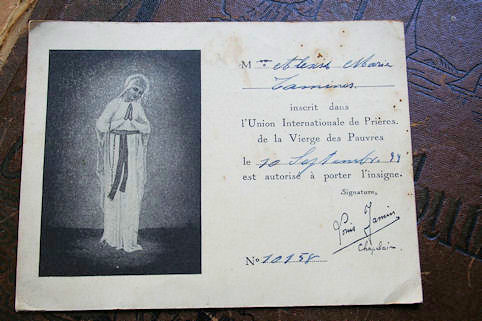 Mme Alexis Marie
Tamines
inscrit dans
l'Union Internationale de Prières.
de la Vierge des Pauvres
le 10 Septembre
est autorisé à porter l'insigne.
Signature,
Louis Jamin
Chapelain
No 10158